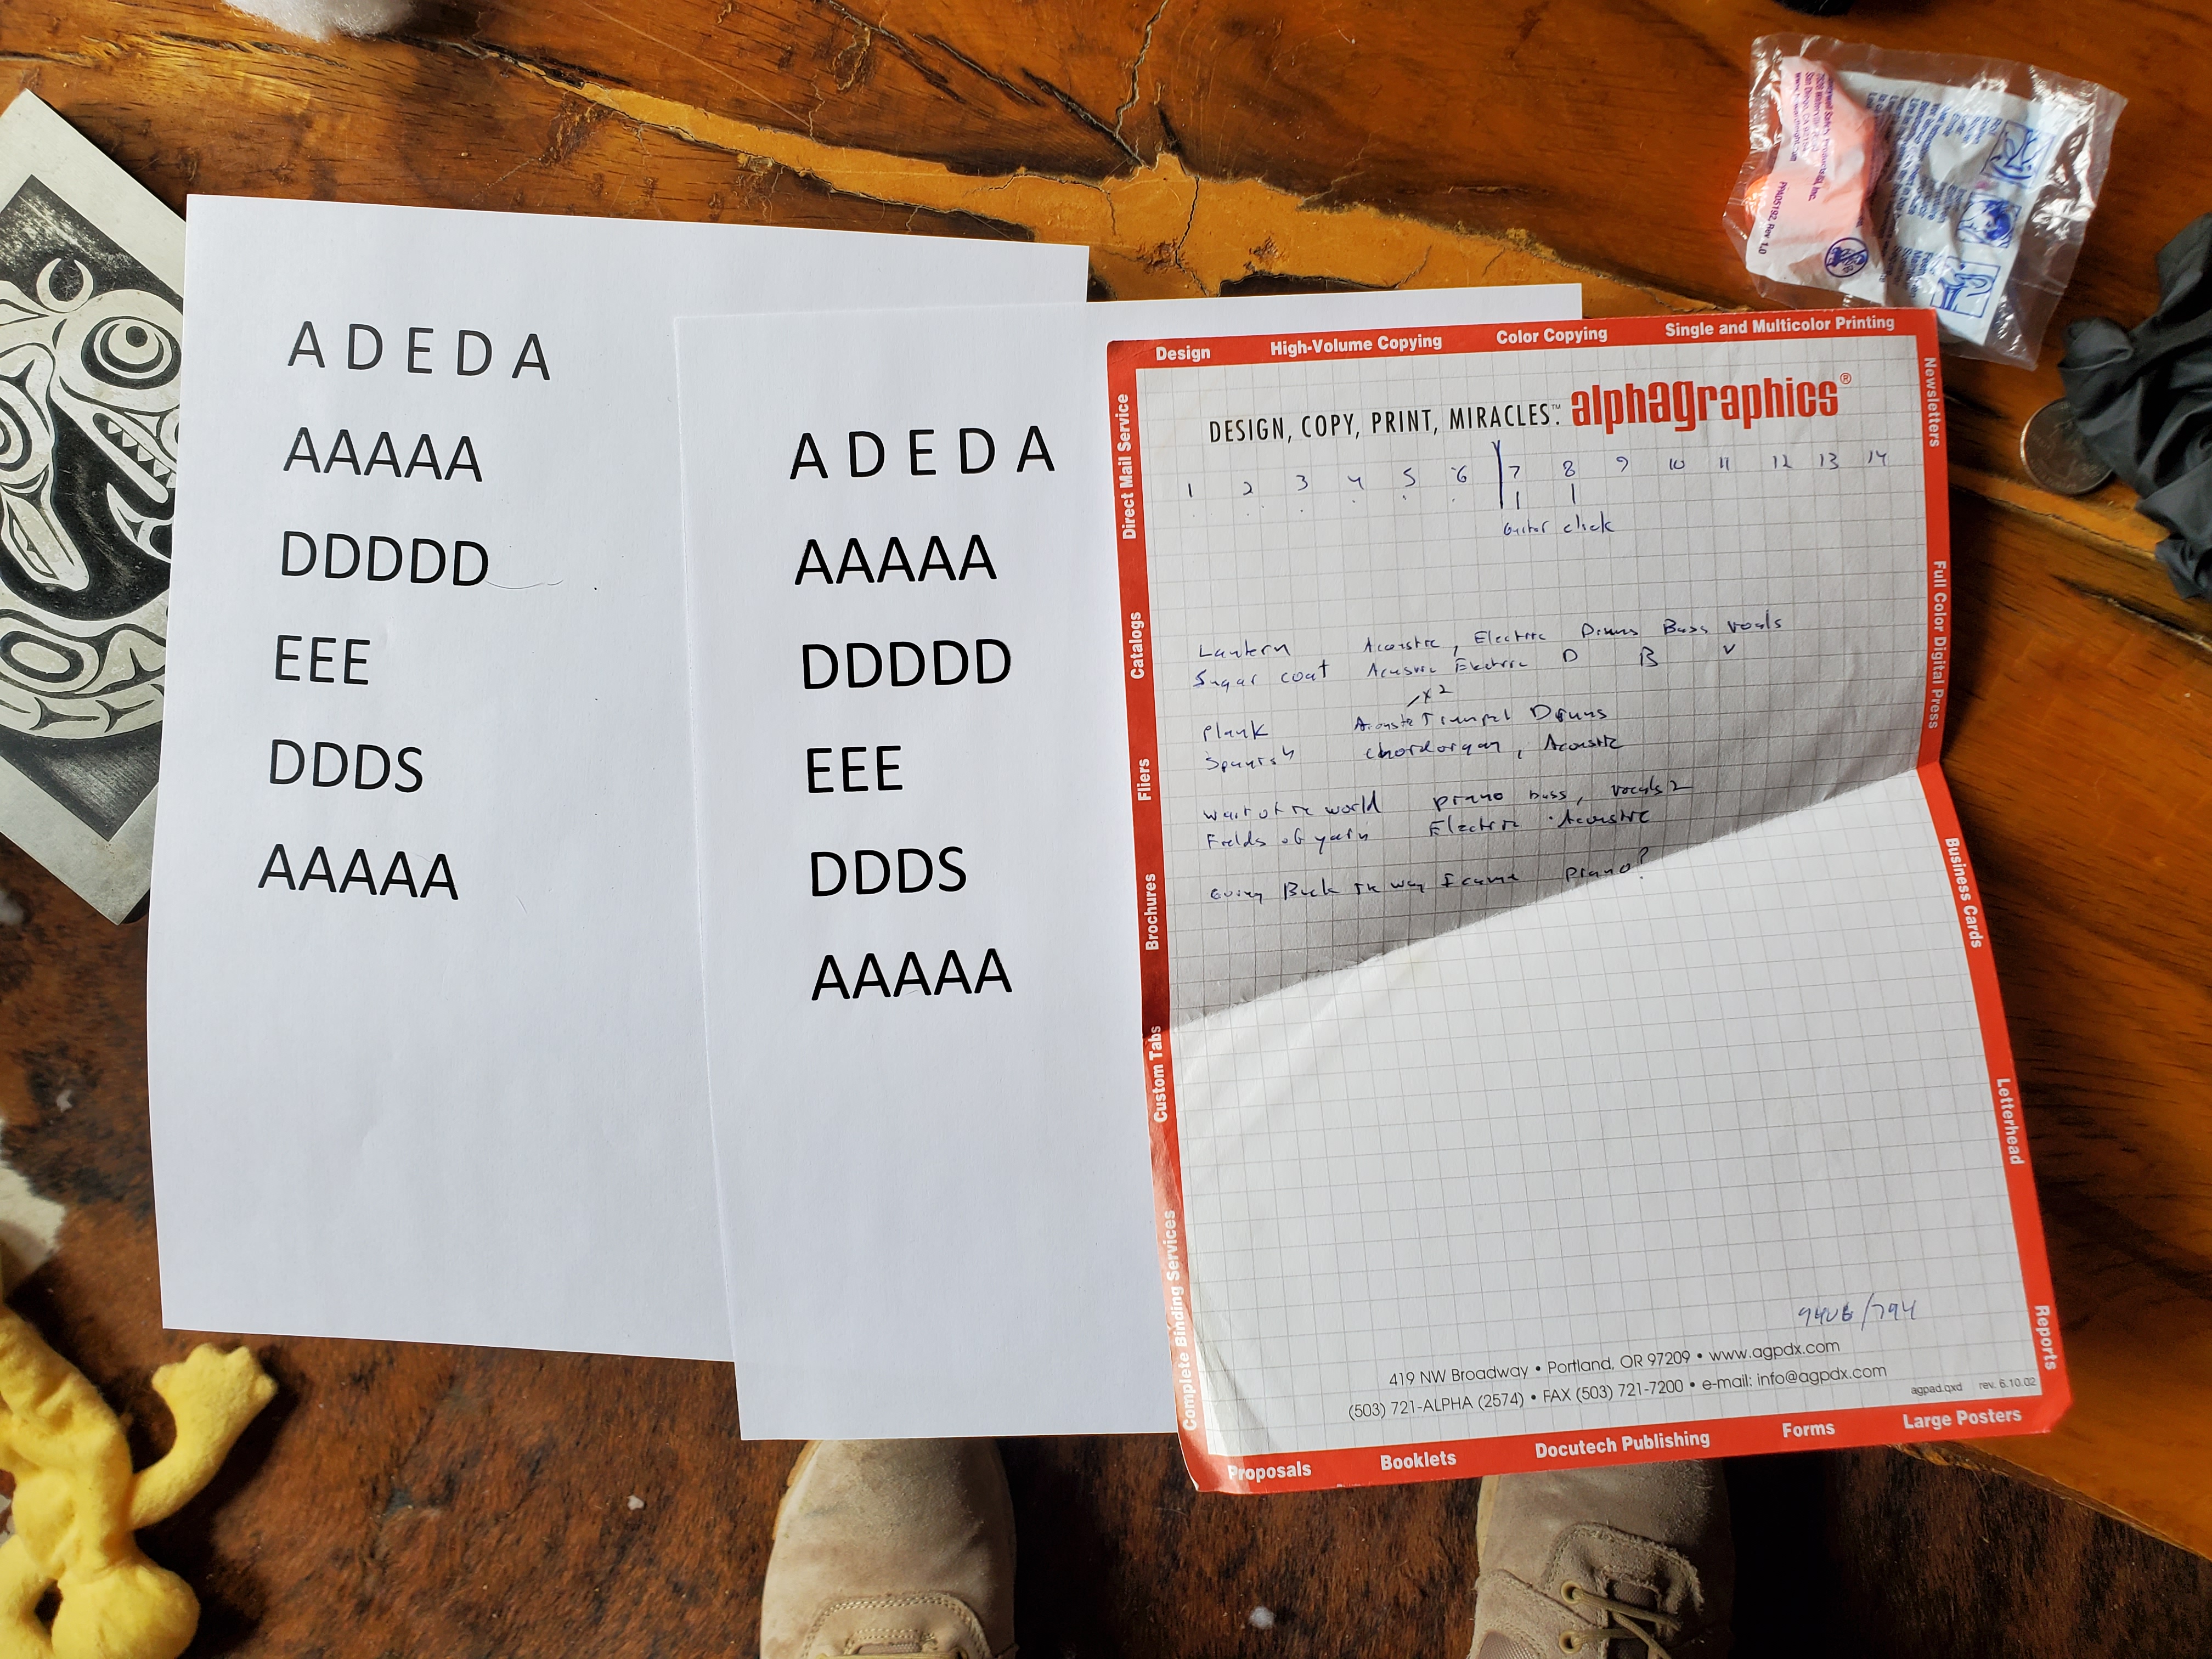 A D E D A
AAAAA
DDDDD
EEE
DDDS
AAAAA
A D E D A
AAAAA
DDDDD
EEE
DDDS
AAAAA
Design High-Volume Copying Color Copying Single and Multicolor Printing
DESIGN, COPY, PRINT, MIRACLES.™ alphagraphics®
1 2 3 4 5 6 7 8 9 10 11 12 13 14
Guitar click
Lantern Acoustic, Electric Drums Bass vocals
Sugar coat Acoustic Electric D B V
x2
Plank Acoustic Trumpet Drums
Spanish chordorgan, Acoustic
wait of the world piano bass, vocals 2
Fields of yarn Electric Acoustic
Going Back The way I came Piano?
419 NW Broadway • Portland, OR 97209 • www.agpdx.com
(503) 721-ALPHA (2574) • FAX (503) 721-7200 • e-mail: info@agpdx.com
agpad.qxd rev. 6.10.02
Direct Mail Service
Catalogs
Fliers
Brochures
Custom Tabs
Complete Binding Services
Newsletters
Full Color Digital Press
Business Cards
Letterhead
Reports
Proposals Booklets Docutech Publishing Forms Large Posters
San Diego, CA
PM05192 Rev 1.0